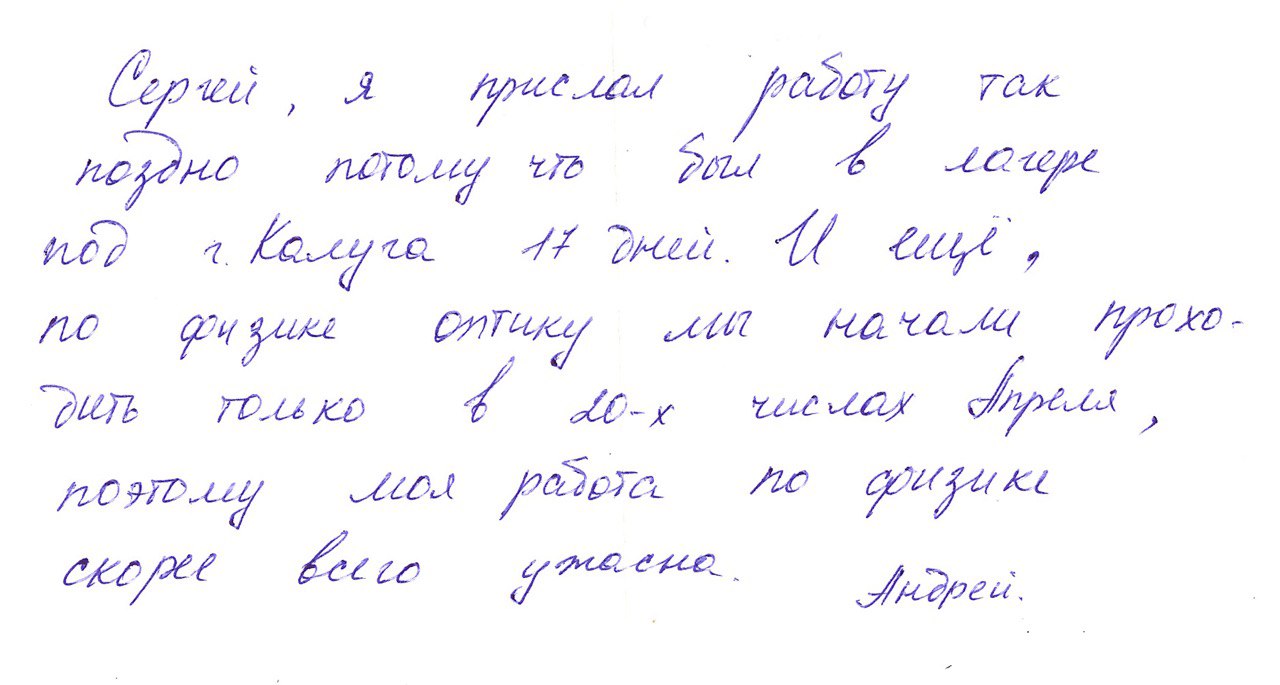 Сергей, я прислал работу так
поздно потому что был в лагере
под г. Калуга 17 дней. И ещё,
по физике оптику мы начали прохо-
дить только в 20-х числах Апреля,
поэтому моя работа по физике
скорее всего ужасна.
Андрей.